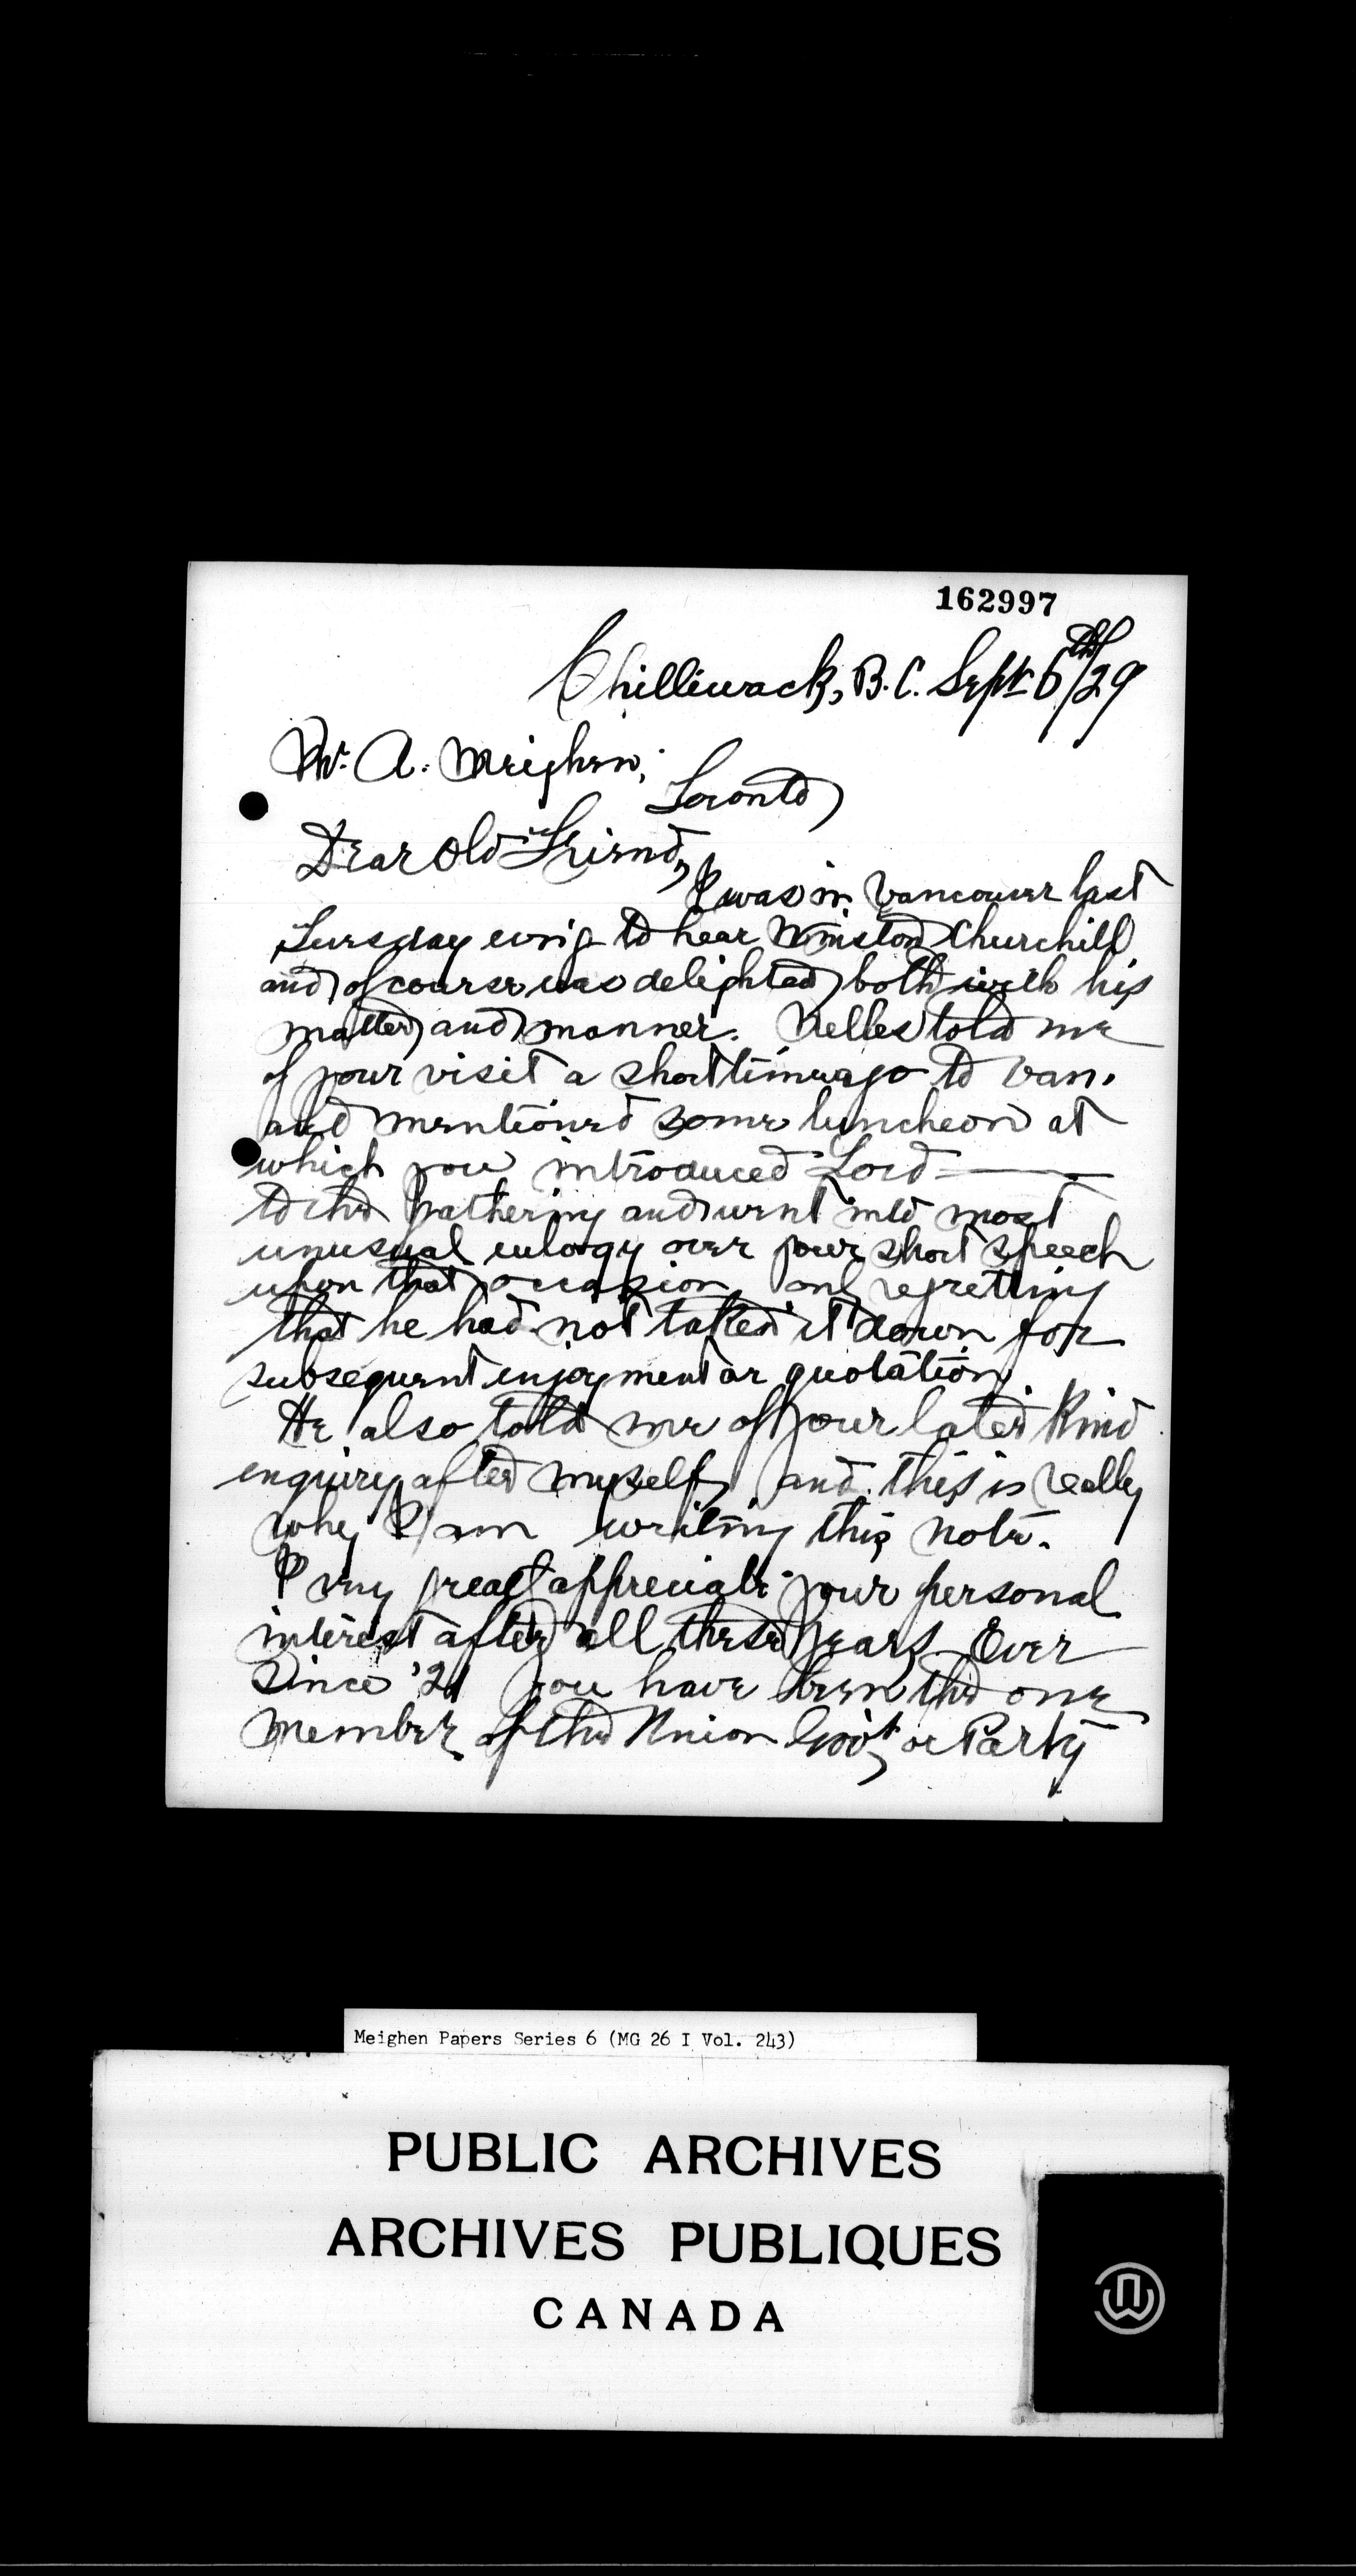 162997
Chilliwack, B.C. Sept 6th/29
Mr. A. Meighen,
Toronto
Dear Old Friend,
I was in Vancouver last
Tuesday evn'g to hear Winston Churchill
and of course was delighted both with his
matter and manner. Nelles told me
of your visit a short time ago to Van.
and mentioned some luncheon at
which you introduced Lord ———
to the gathering and went into most
unusual eulogy over your short speech
upon that occasion and regretting
that he had not taken it down for
subsequent enjoyment or quotation.
He also told me of your later kind
enquiry after myself, and this is really
why I am writing this note.
I very great appreciate your personal
interest after all these years. Ever
since '21 you have been the one
member of the Union Gov't or Party
Meighen Papers Series 6 (MG 26 I Vol. 243)
PUBLIC ARCHIVES
ARCHIVES PUBLIQUES
CANADA